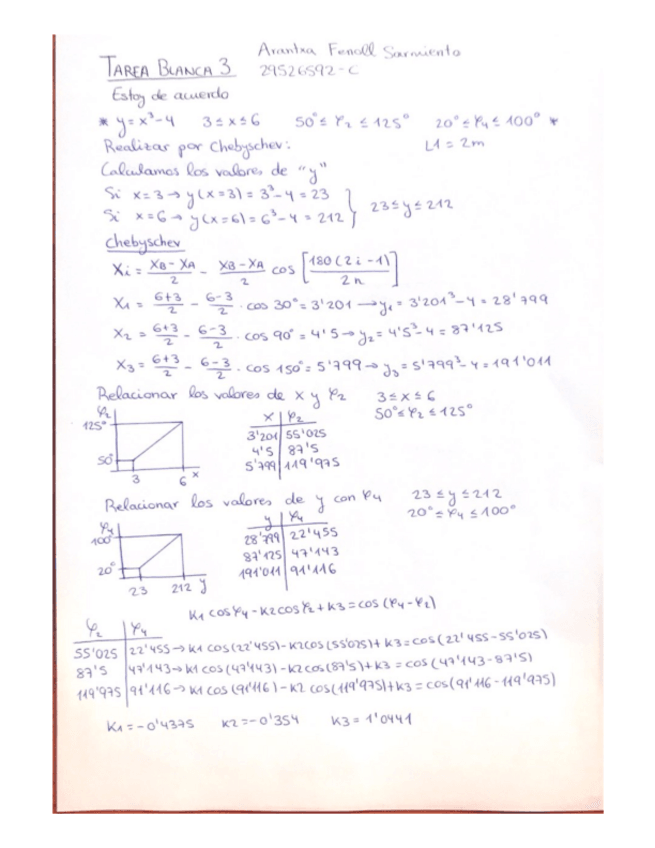 Arantxa Fenoll Sarmiento
TAREA BLANCA 3 29526592-C
Estoy de acuerdo
* y=x³-4 3≤x≤6 50°≤φ₂≤125° 20°≤φ₄≤100° *
Realizar por Chebyschev: L1 = 2m
Calculamos los valores de "y"
Si x=3→y(x=3)=3³-4=23
Si x=6→y(x=6)=6³-4=212 } 23≤y≤212
Chebyschev
Xi = XB-XA/2 - XB-XA/2 cos [180(2i-1)/2n]
X₁ = 6+3/2 - 6-3/2 · cos 30°=3'201→y₁=3'201³-4=28'799
X₂ = 6+3/2 - 6-3/2 · cos 90°=4'5→y₂=4'5³-4=87'125
X₃ = 6+3/2 - 6-3/2 · cos 150°=5'799→y₃=5'799³-4=191'011
Relacionar los valores de x y φ₂ 3≤x≤6
50°≤φ₂≤125°
φ₂
125°
50°
3 6 x
x φ₂
3'201 55'025
4'5 87'5
5'799 119'975
Relacionar los valores de y con φ₄ 23≤y≤212
20°≤φ₄≤100°
φ₄
100°
20°
23 212 y
y φ₄
28'799 22'455
87'125 47'143
191'011 91'116
K1 cosφ₄-K2cosφ₂+K3=cos(φ₄-φ₂)
φ₂ φ₄
55'025 22'455→K1 cos(22'455)-K2cos(55'025)+K3=cos(22'455-55'025)
87'5 47'143→K1 cos(47'143)-K2cos(87'5)+K3=cos(47'143-87'5)
119'975 91'116→K1 cos(91'116)-K2 cos(119'975)+K3=cos(91'116-119'975)
K1=-0'4375 K2=-0'354 K3=1'0441